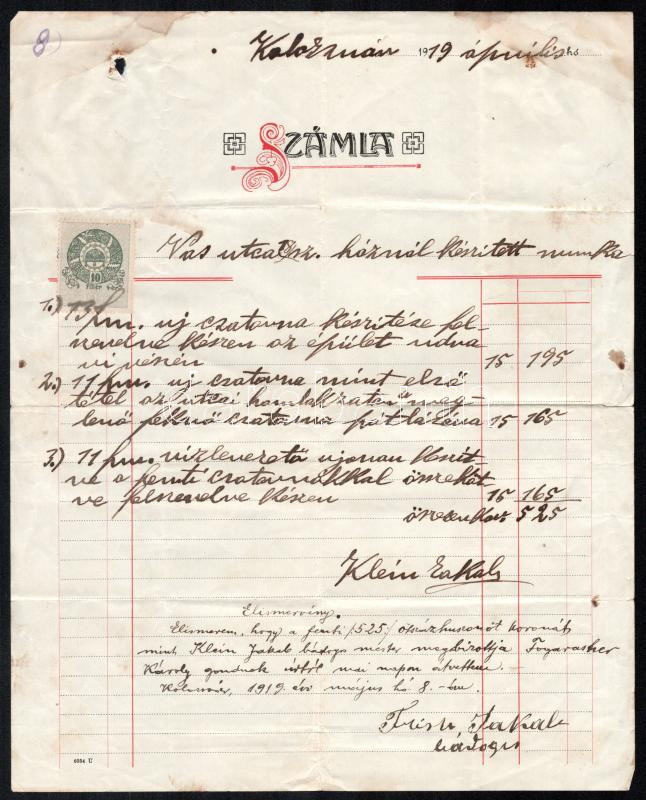 8
Kolozsvár 1919 április hó
SZÁMLA
10
Vas utca sz. háznál készített munka
1.) 13 fm. uj csatorna készitése fel-
szerelve készen az épület udva
ri részén 15 195
2.) 11 fm. uj csatorna mint első
tétel az utcai homlokzaton meg-
lenő csatorna pótlására 15 165
3.) 11 fm. vizlevezető ujonan készit
ve a fenti csatornákkal összeköt
ve felszerelve készen 15 165
összesen Kor 525
Klein Jakab
Elismervény.
Elismerem, hogy a fenti /:525:/ ötszázhuszonöt koronát
mint Klein Jakab bádogos mester megbizottja Fogarasher
Károly gondnok urtól mai napon átvettem.-
Kolozsvár, 1919. évi május hó 8.-án.
Frish Jakab
bádogos
6084 U